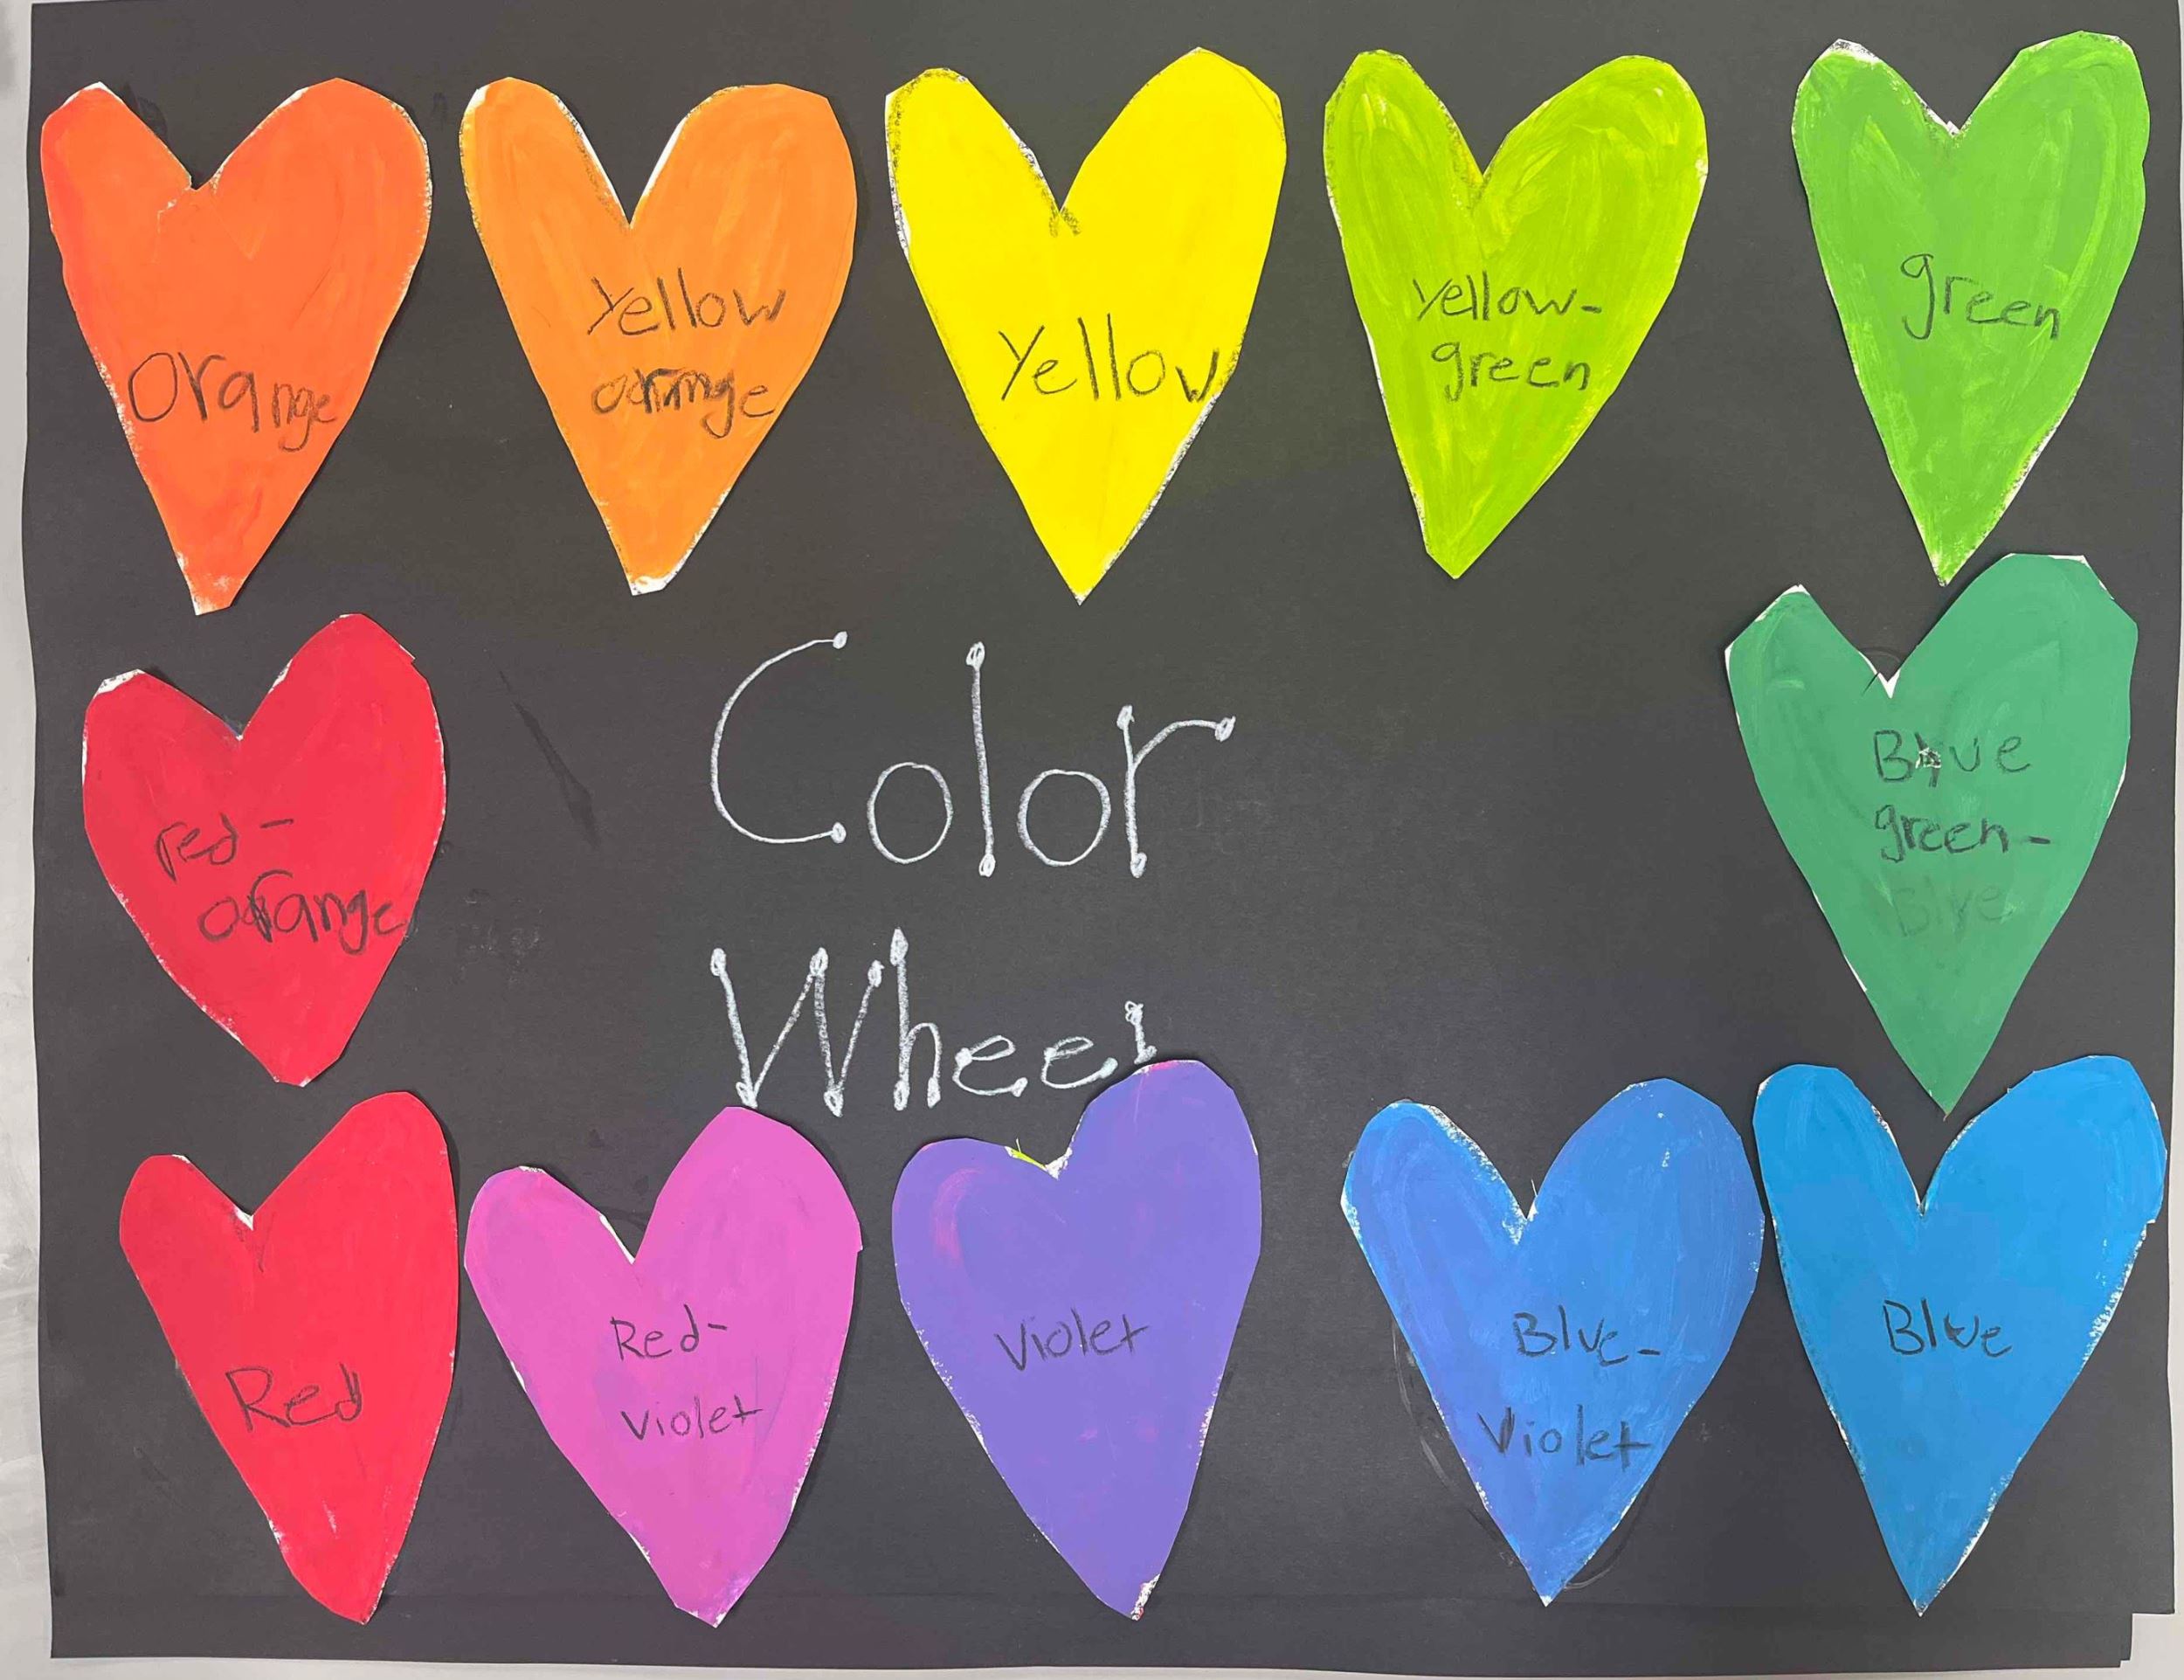 Orange
Yellow
orange
Yellow
Yellow-
green
green
red-
orange
Color
Wheel
Blue
green-
Blue
Red
Red-
Violet
Violet
Blue-
Violet
Blue